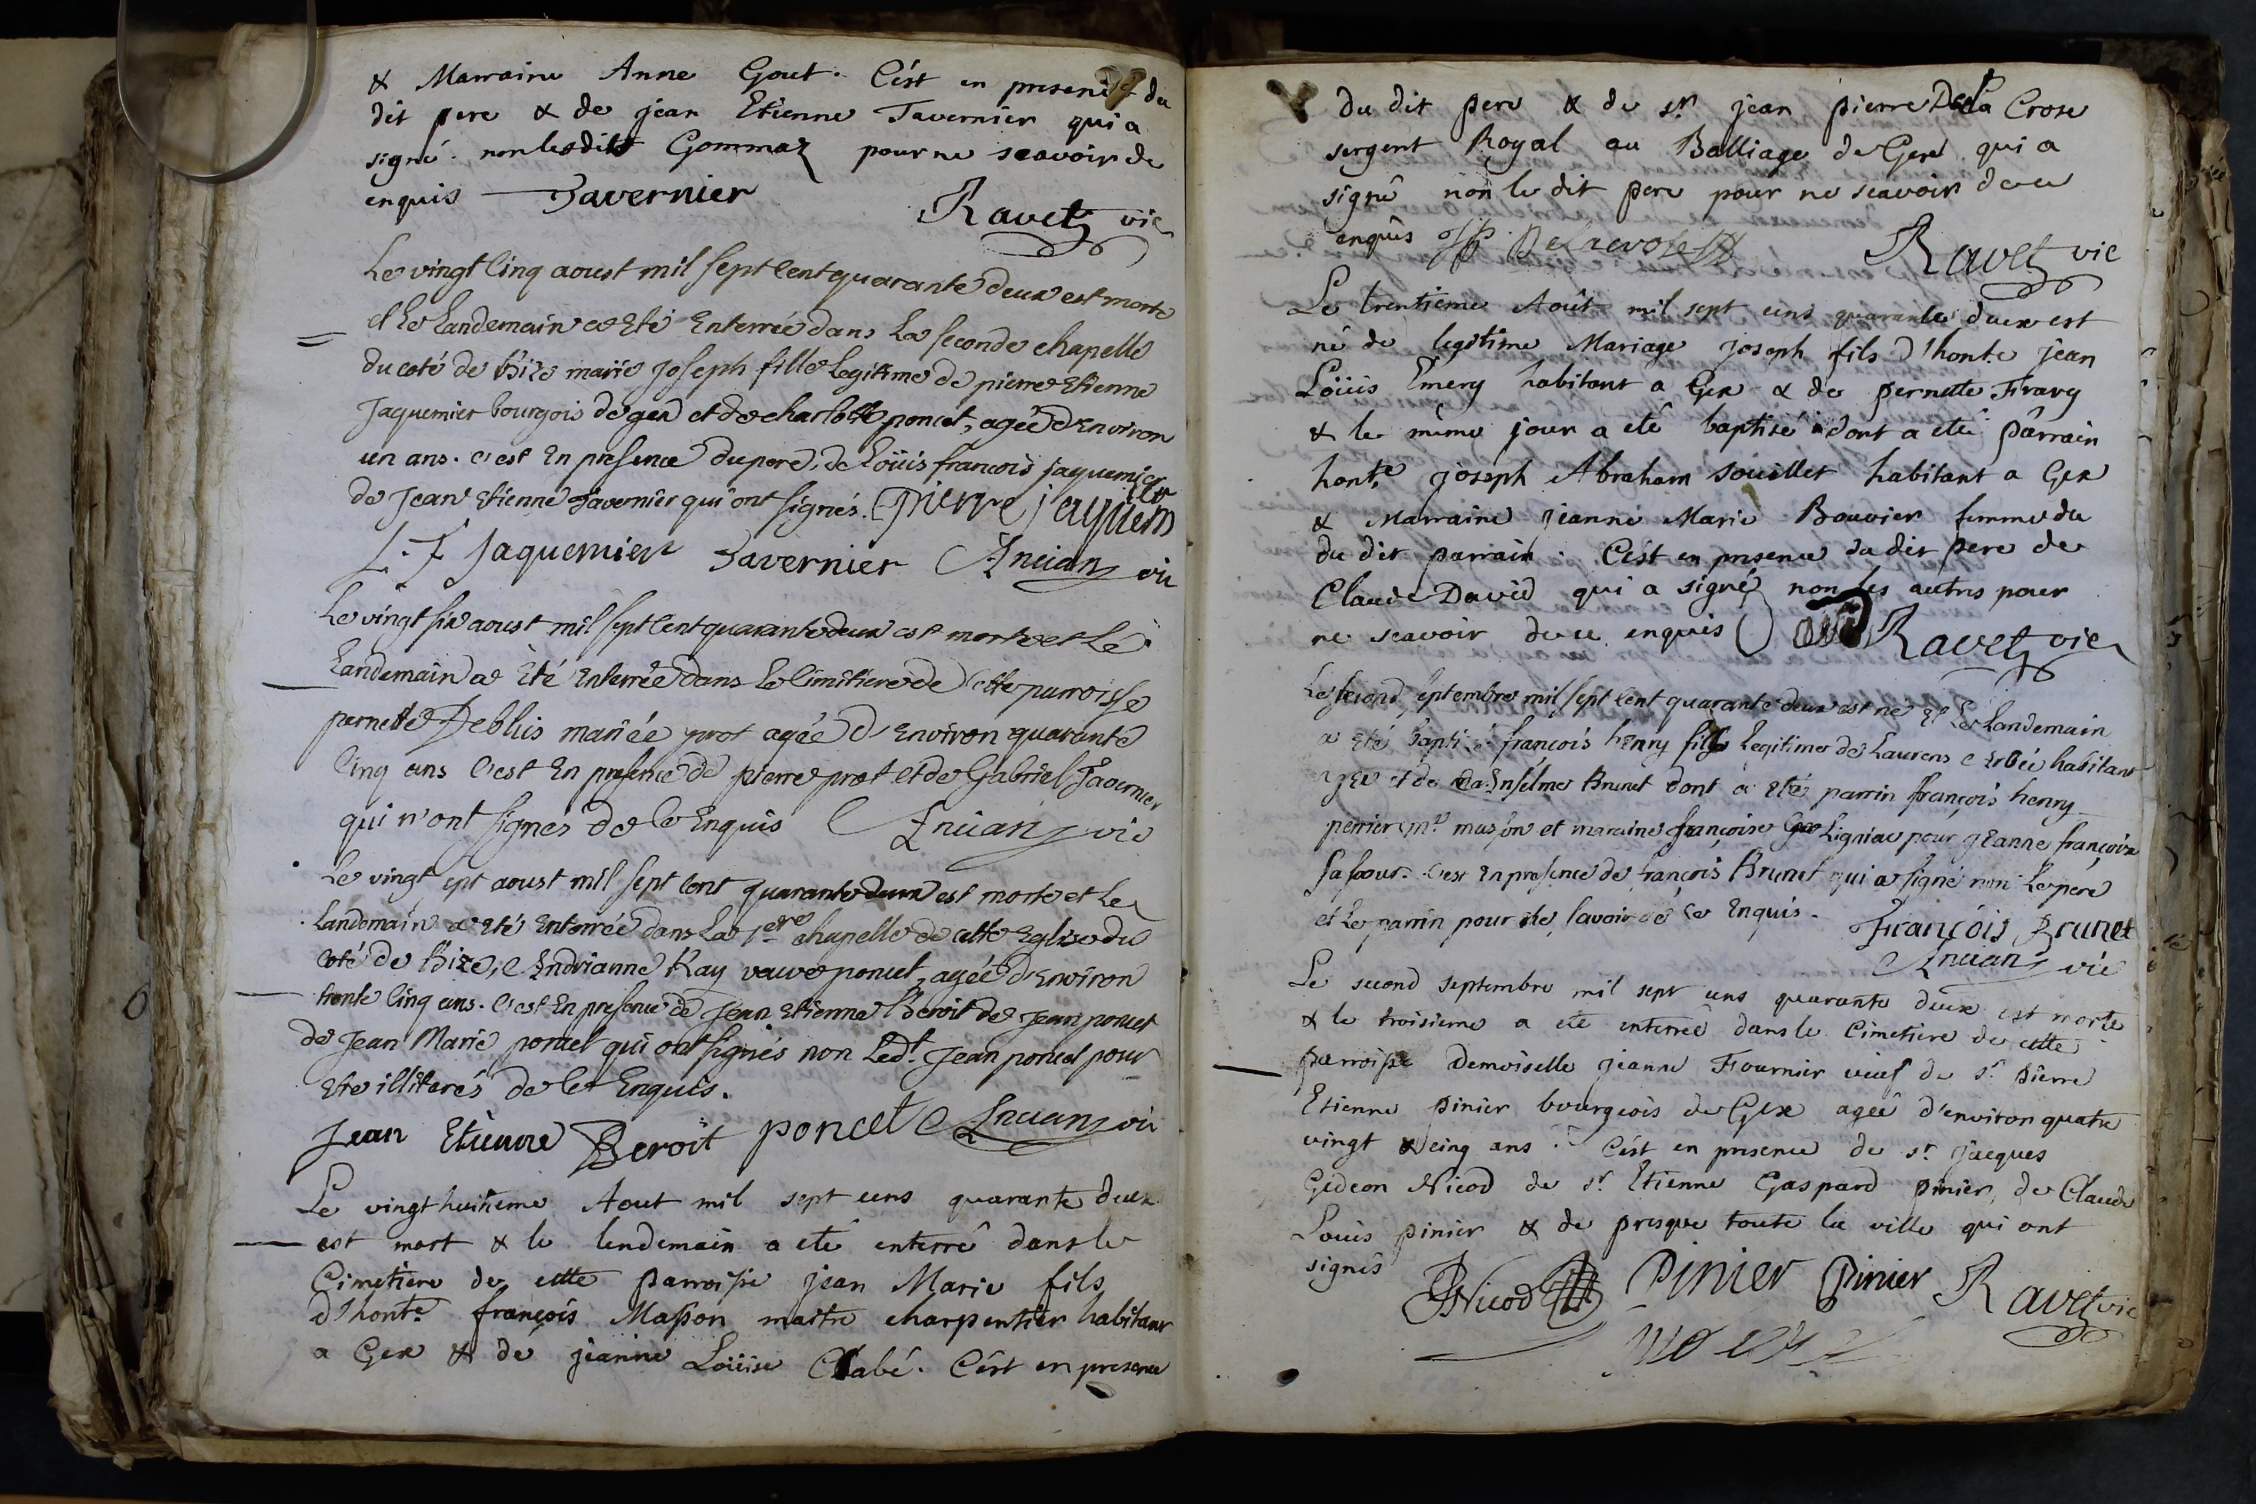 & Marraine Anne Gout. C'est en presence du
dit pere & de jean Etienne Tavernier qui a
signé. non lesdits Gommaz pour ne scavoir de
enquis Tavernier
Ravet vic
Le vingt Cinq aoust mil sept Cent quarante deux est morte
et Le Landemain a Eté Enterrée dans La seconde chapelle
du coté de Bize marie joseph fille Legitime de pierre Etienne
Jaquemier bourgois de gex et de charlotte poncet, agée d'Environ
un ans. c'est En presence du pere, de Loüis francois jaquemier
de Jean Etienne Tavernier qui ont signés. pierre jaquiem
L. F Jaquemier Tavernier Anician vic
Le vingt six aoust mil sept Cent quarante deux est morte et Le
Landemain a Eté Enterrée dans Le Cimitiere de Cette parroisse
pernette Deblüis mariée prot agée d'Environ quarante
Cinq ans C'est En presence de pierre prot et de Gabriel
qui n'ont signés de Ce Enquis Anician vic
Le vingt sept aoust mil sept Cent quarante deux est morte et Le
Landemain a Eté Enterrée dans La 1ere chapelle de cette Eglise du
coté de Bize, Andrianne Kay vauve poncet, agée d'Environ
trente Cinq ans. C'est En presence de Jean Etienne Beroit de Jean poncet
de Jean Marie poncet qui ont signés non Led.t Jean poncet pour
Etre illiterés de Ce Enquis.
Jean Etienne Beroit poncet Anician vic
Le vingt huitieme Aout mil sept cens quarante deux
est mort & le lendemain a eté enterré dans le
Cimetiere de cette parroisse jean Marie fils
d'hont.e françois Masson maitre charpentier habitant
a Gex & de jeanne Loüise Chabé. C'est en presence
du dit pere & de s.r jean pierre De La Crose
sergent Royal au Balliage de Gex qui a
signé non le dit pere pour ne scavoir de ce
enquis Delacrose Ravet vic
Le trentieme Août mil sept cens quarante deux est
né de legitime Mariage joseph fils d'hont.e jean
Loüis Emery habitant a Gex & de pernette Fravy
& le même jour a eté baptisé dont a eté parrain
hont.e joseph Abraham souillet habitant a Gex
& Marraine jeanne Marie Bouvier femme du
du dit parrain. C'est en presence du dit pere de
Claude David qui a signé non les autres pour
ne scavoir de ce enquis David Ravet vic
Le second septembre mil sept Cent quarante deux est né et Le Landemain
a Eté baptisé françois henry fils Legitime de Laurens habitant
gex et de Anselme Brunet dont a Eté parrin françois henry
perrier m.e mason et maraine françoise Ligniac pour jeanne françoise
C'est En presence de françois Brunet qui a signé non Le pere
et Le parrin pour ne savoir de Ce Enquis. François Brunet
Anician vic
Le second septembre mil sept cens quarante deux est morte
& le troisieme a eté enterreé dans le Cimetiere de cette
parroisse Demoiselle jeanne Fournier veuf de s.r pierre
Etienne pinier bourgeois de Gex ageé d'environ quatre
vingt & cinq ans. C'est en presence de s.r jacques
Gedeon Nicod de s.r Etienne Gaspard pinier, de Claude
Louis pinier & de presque toute la ville qui ont
signés
Nicod Pinier Pinier Ravet vic